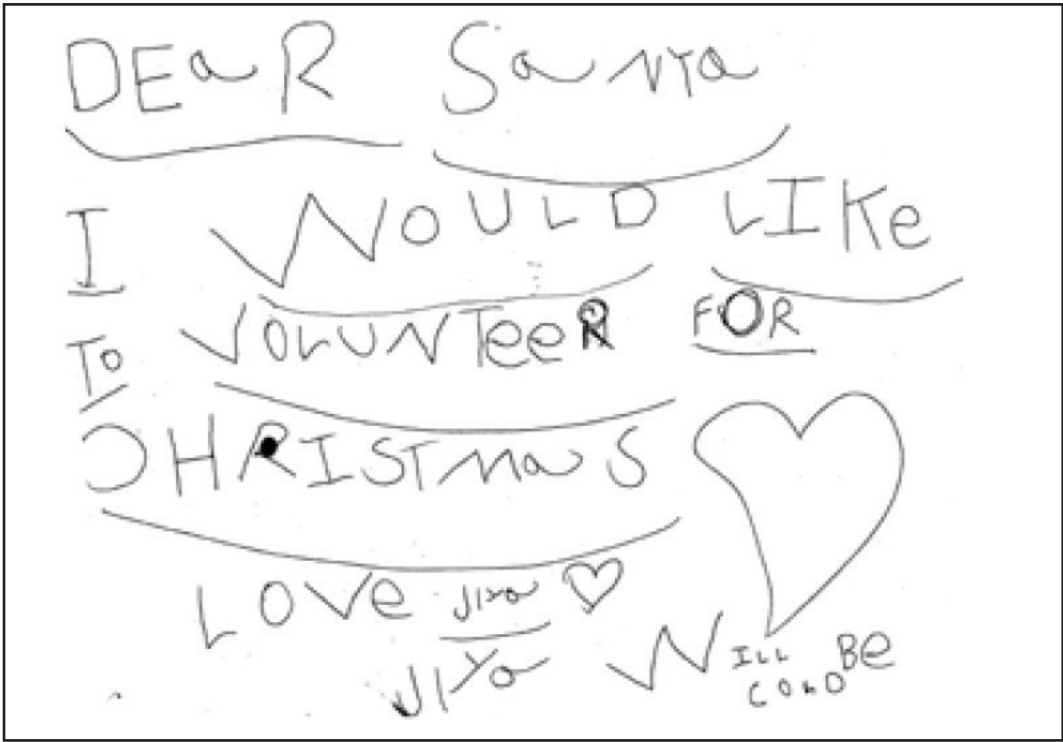 DEaR Santa
I WOULD LIKe
To VOLUNTeeR FOR
CHRISTMaS
LOVe Jiya
JIYa WILL Be
COLD